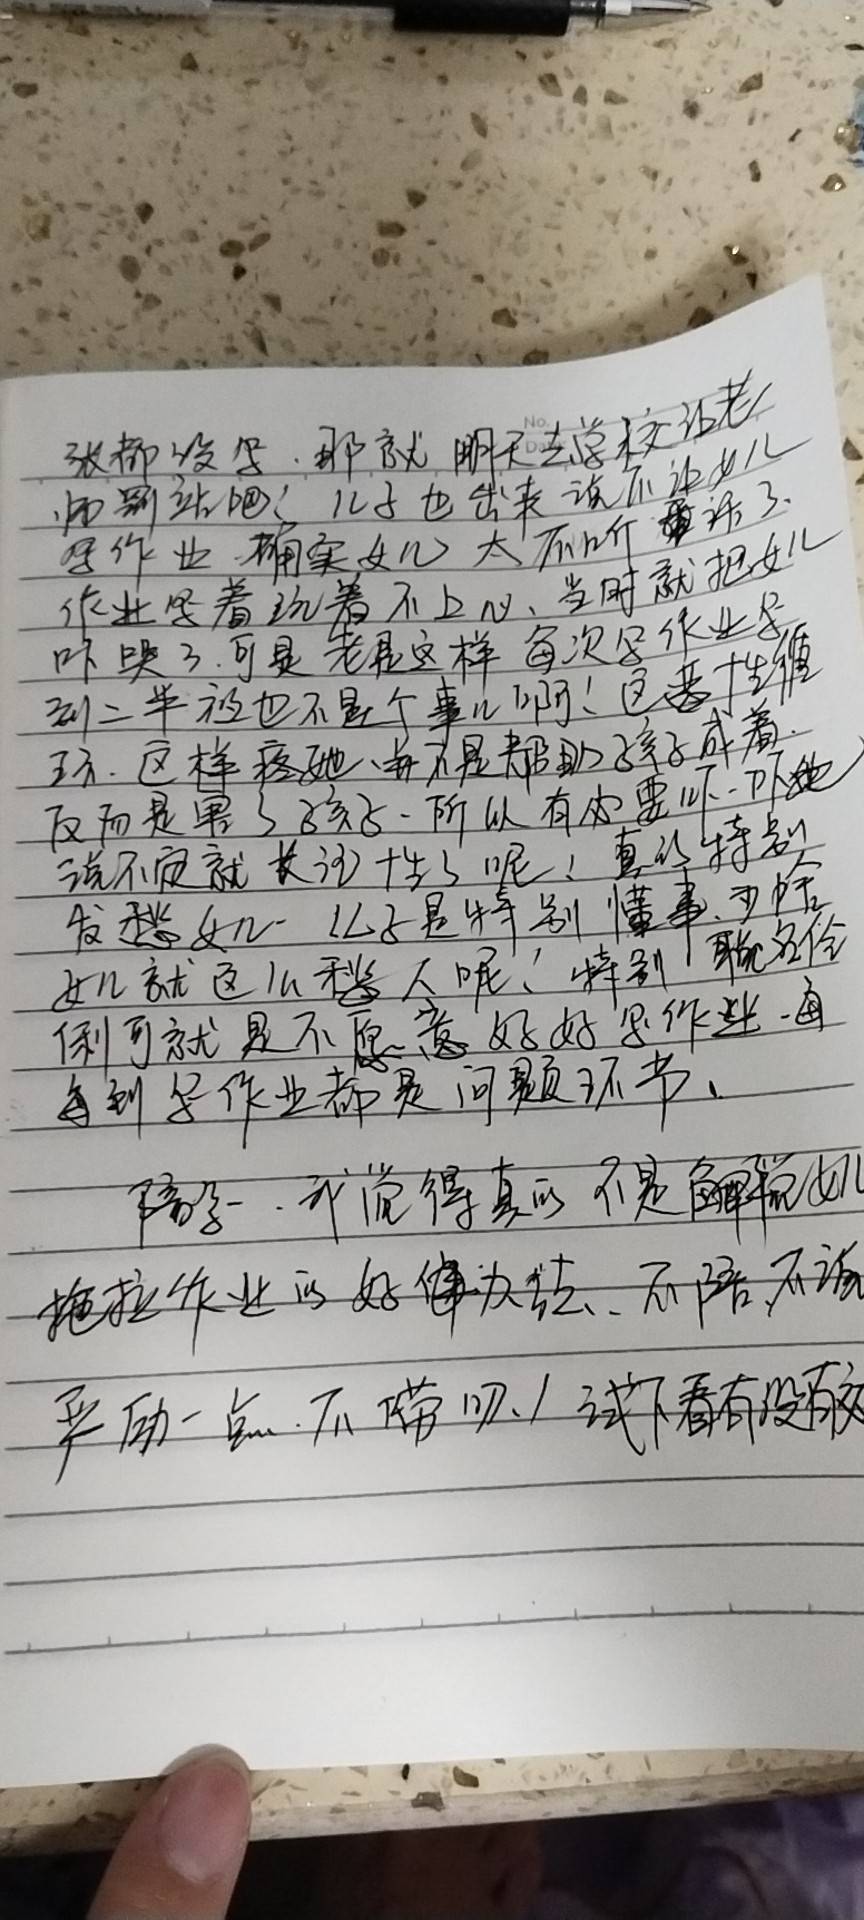 No.
Date
张都没写.那就明天去学校让老
师罚站吧！儿子也出来说不让女儿
写作业.确实女儿太不听话了.
作业写着玩着不上心、当时就把女儿
吓哭了.可是老是这样每次写作业写
到二半夜也不是个事儿啊！这恶性循
环.这样疼她、并不是帮助孩子成着.
反而是害了孩子-所以有必要吓一吓她
说不定就长记性了呢！真的特别
发愁女儿-儿子是特别懂事.为啥
女儿就这么愁人呢！特别聪名伶
俐可就是不愿意好好写作业-每
每到写作业都是问题环节、
陪学-.我觉得真的不是解说女儿
拖拉作业的好办法.、不陪、不说
严励一点.不唠叨、！试下看有没有效